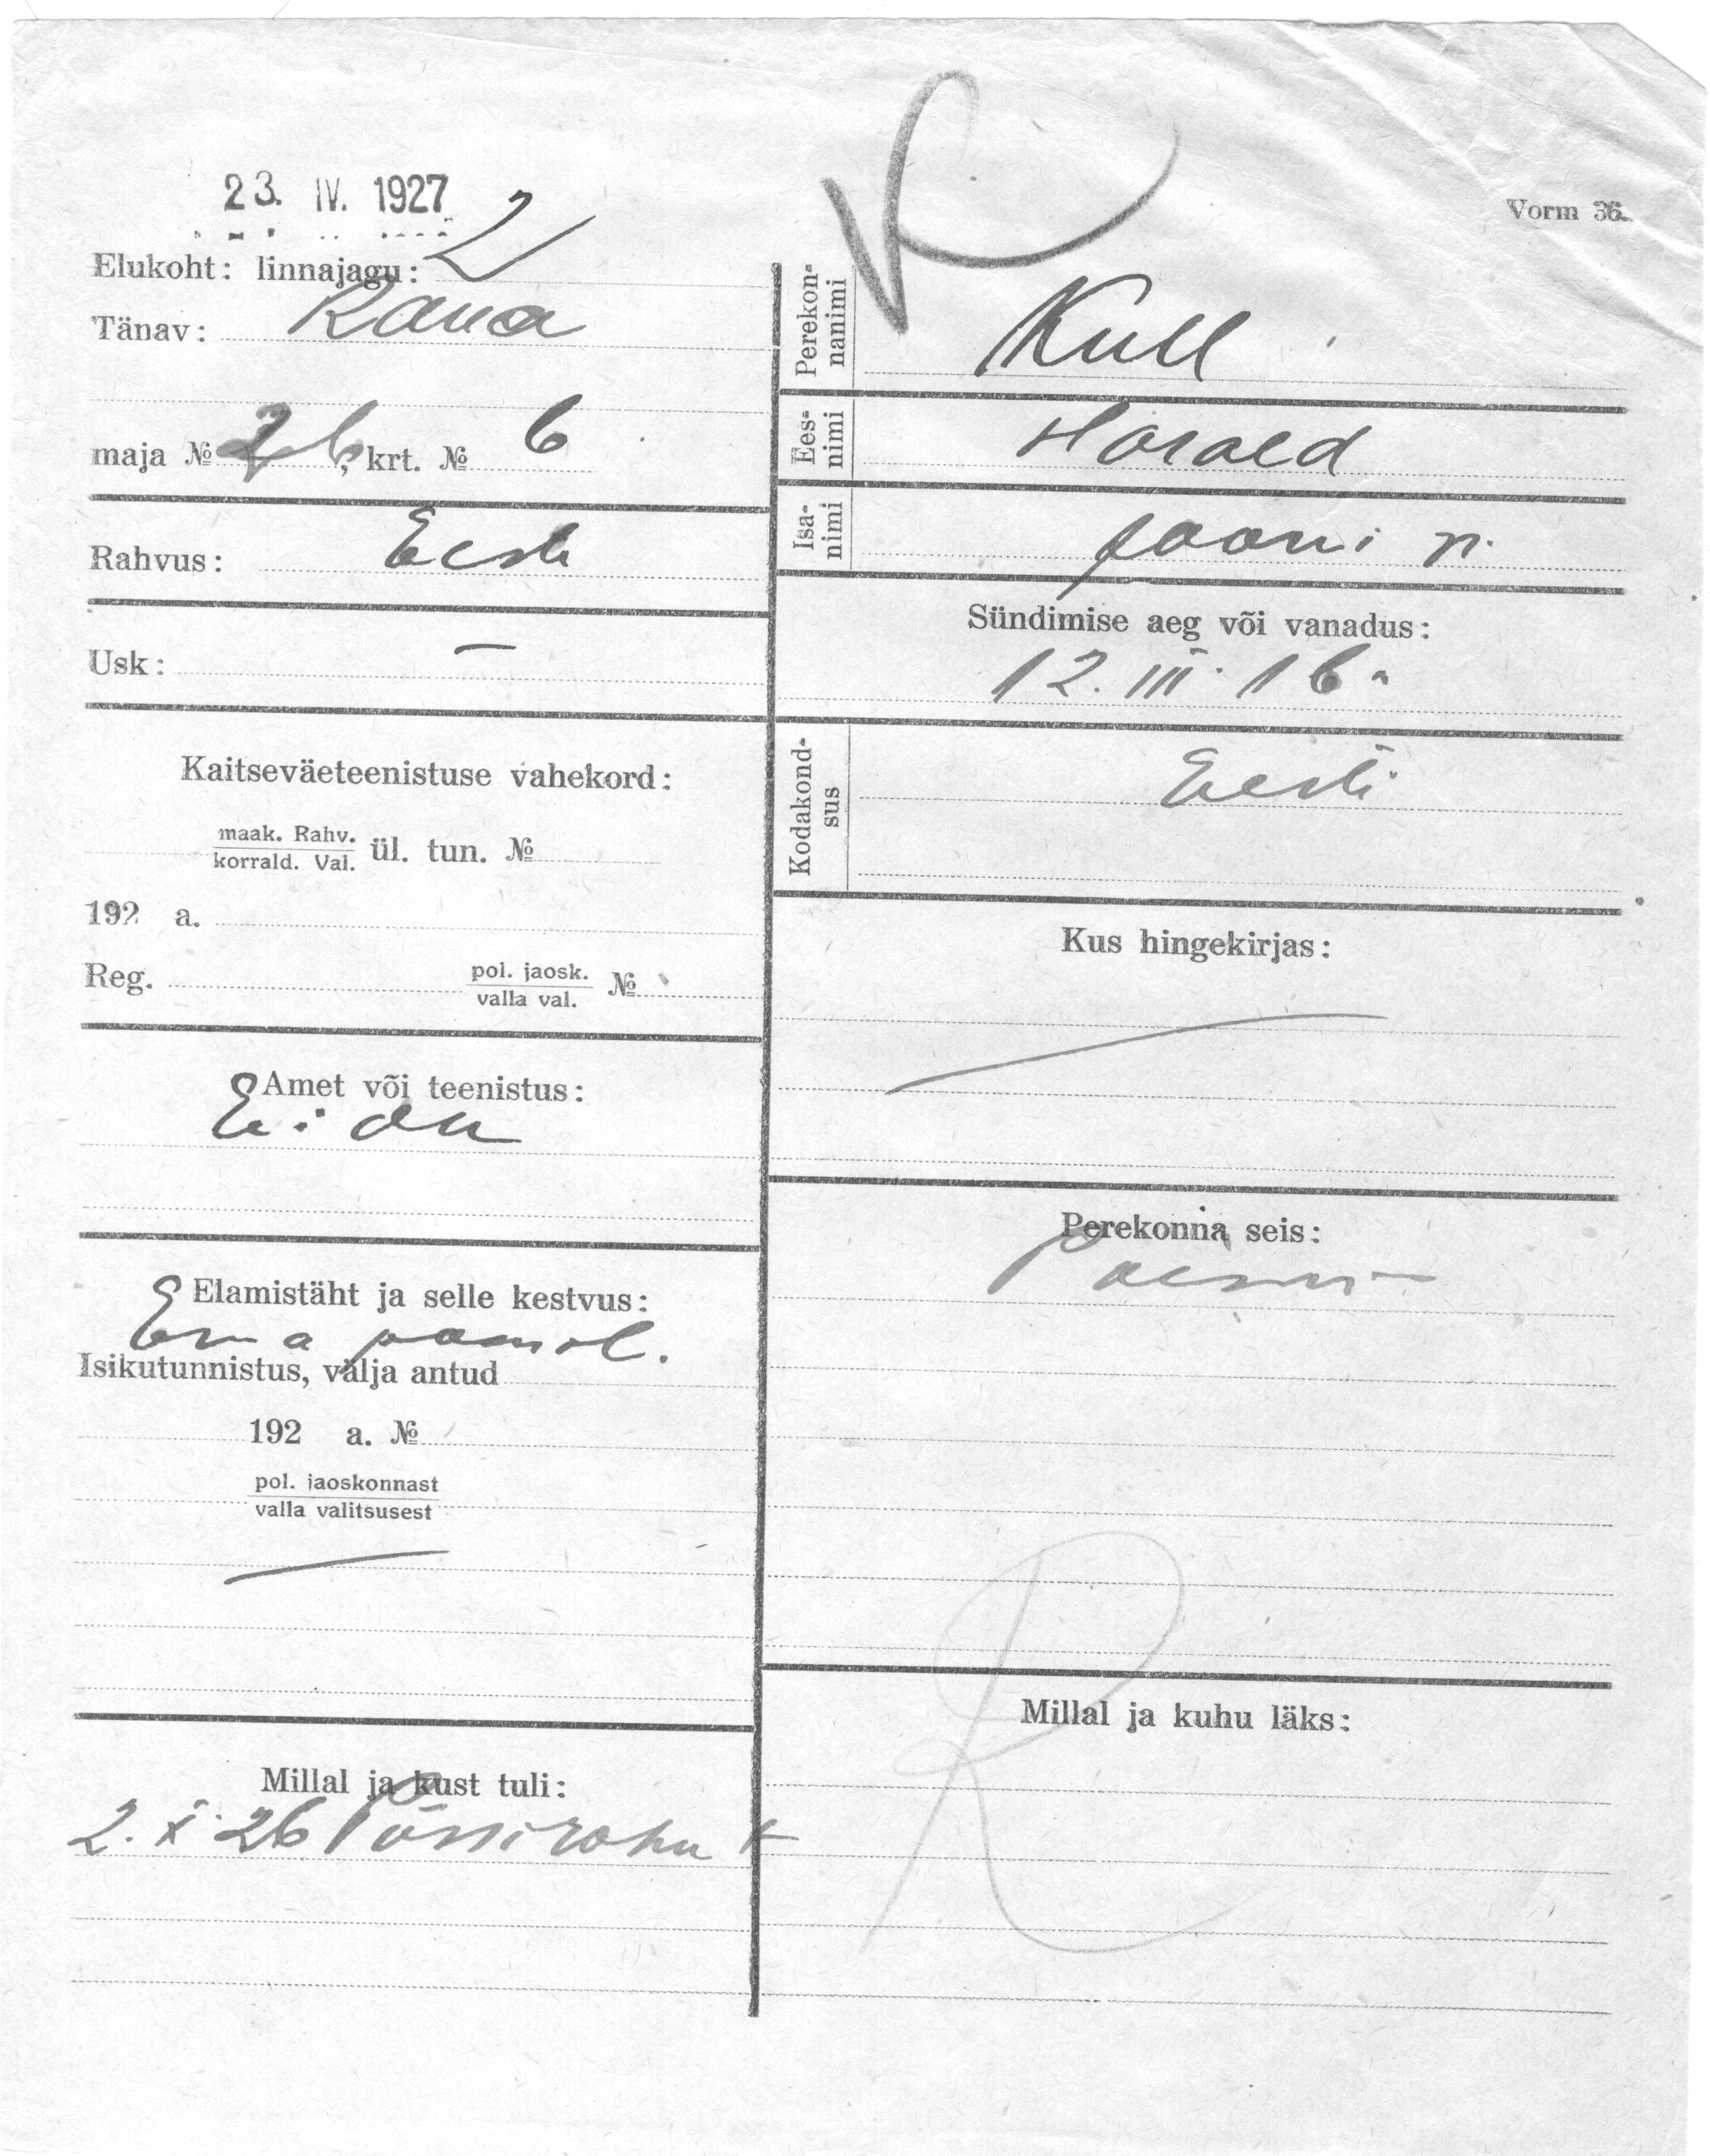 23. IV. 1927
Vorm 36.
Elukoht: linnajagu: 2
Tänav: Raua
maja № 26, krt. № 6
Rahvus: Eesti
Usk: —
Kaitseväeteenistuse vahekord:
maak. Rahv.
korrald. Val. ül. tun. №
192 a.
Reg. pol. jaosk. №
valla val.
Amet või teenistus:
Ei ole
Elamistäht ja selle kestvus:
Ema
Isikutunnistus, välja antud
192 a. №
pol. jaoskonnast
valla valitsusest
Millal ja kust tuli:
2. X 26
R
Perekon-
nanimi Kull
Ees-
nimi Harald
Isa-
nimi Jaani p.
Sündimise aeg või vanadus:
12. III. 16.
Kodakond-
sus Eesti
Kus hingekirjas:
Perekonna seis:
Millal ja kuhu läks:
R